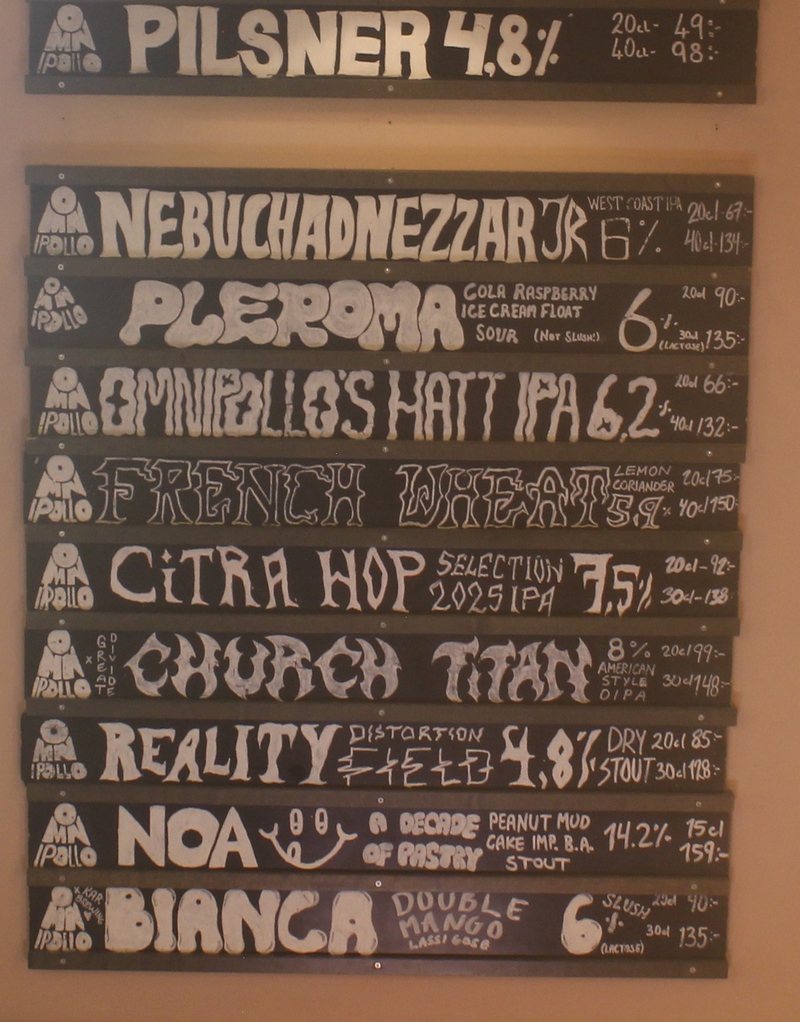 OMNIPOLLO PILSNER 4,8% 20cl- 49:-
40cl- 98:-
OMNIPOLLO NEBUCHADNEZZAR JR WEST COAST IPA 6% 20cl-67:-
40cl-134:-
OMNIPOLLO PLEROMA COLA RASPBERRY 6% 20cl 90:-
ICE CREAM FLOAT
SOUR (NOT SLUSH!) (LACTOSE) 30cl 135:-
OMNIPOLLO OMNIPOLLO'S HATT IPA 6,2% 20cl 66:-
40cl 132:-
OMNIPOLLO FRENCH WHEAT LEMON 20cl 75:-
CORIANDER
5.9% 40cl 150:-
OMNIPOLLO CiTRA HOP SELECTION 7,5% 20cl-92:-
2025 IPA 30cl-138:-
OMNIPOLLO x GREAT DIVIDE CHURCH TITAN 8% 20cl 99:-
AMERICAN
STYLE 30cl 148:-
DIPA
OMNIPOLLO REALITY DISTORTION 4,8% DRY 20cl 85:-
FIELD STOUT 30cl 128:-
OMNIPOLLO NOA A DECADE PEANUT MUD 14.2% 15cl
OF PASTRY CAKE IMP. B.A. 159:-
STOUT
OMNIPOLLO BIANCA DOUBLE 6% SLUSH 20cl 90:-
MANGO
LASSI GOSE (LACTOSE) 30cl 135:-